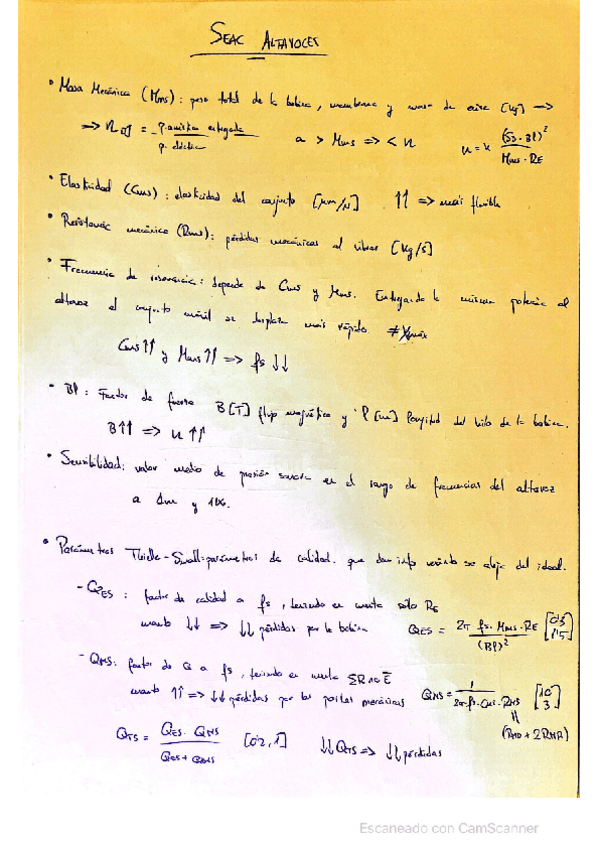 SEAC ALTAVOCES
• Masa Mecánica (Mms): peso total de la bobina, membrana y masa de aire [kg] →
=> η [%] = p. acústica entregada / p. eléctrica   a > Mms => < η   η = k (SD · Bl)² / Mms · RE
• Elasticidad (Cms): elasticidad del conjunto [mm/N]   ↑↑ => más flexible
• Resistencia mecánica (Rms): pérdidas mecánicas al vibrar [kg/s]
• Frecuencia de resonancia: depende de Cms y Mms. Entregando la misma potencia al
altavoz el conjunto móvil se desplaza más rápido ≠ Xmáx
Cms↑↑ y Mms↑↑ => fs ↓↓
• Bl: Factor de fuerza B[T] flujo magnético y l[m] longitud del hilo de la bobina.
B↑↑ => η ↑↑
• Sensibilidad: valor medio de presión sonora en el rango de frecuencias del altavoz
a 1m y 1W.
• Parámetros Thielle-Small: parámetros de calidad. que dan info cuánto se aleja del ideal.
- QES: factor de calidad a fs, teniendo en cuenta sólo RE
cuanto ↓↓ => ↓↓ pérdidas por la bobina   QES = 2π · fs · Mms · RE / (Bl)²   [0'3 1'5]
- QMS: factor de Q a fs, teniendo en cuenta ΣR no E
cuanto ↑↑ => ↓↓ pérdidas por las partes mecánicas   QMS = 1 / 2π · fs · Cms · RMS   [10 3]
(RMD + 2RMR)
QTS = QES · QMS / QES + QMS   [0'2, 1]   ↓↓ QTS => ↓↓ pérdidas
Escaneado con CamScanner